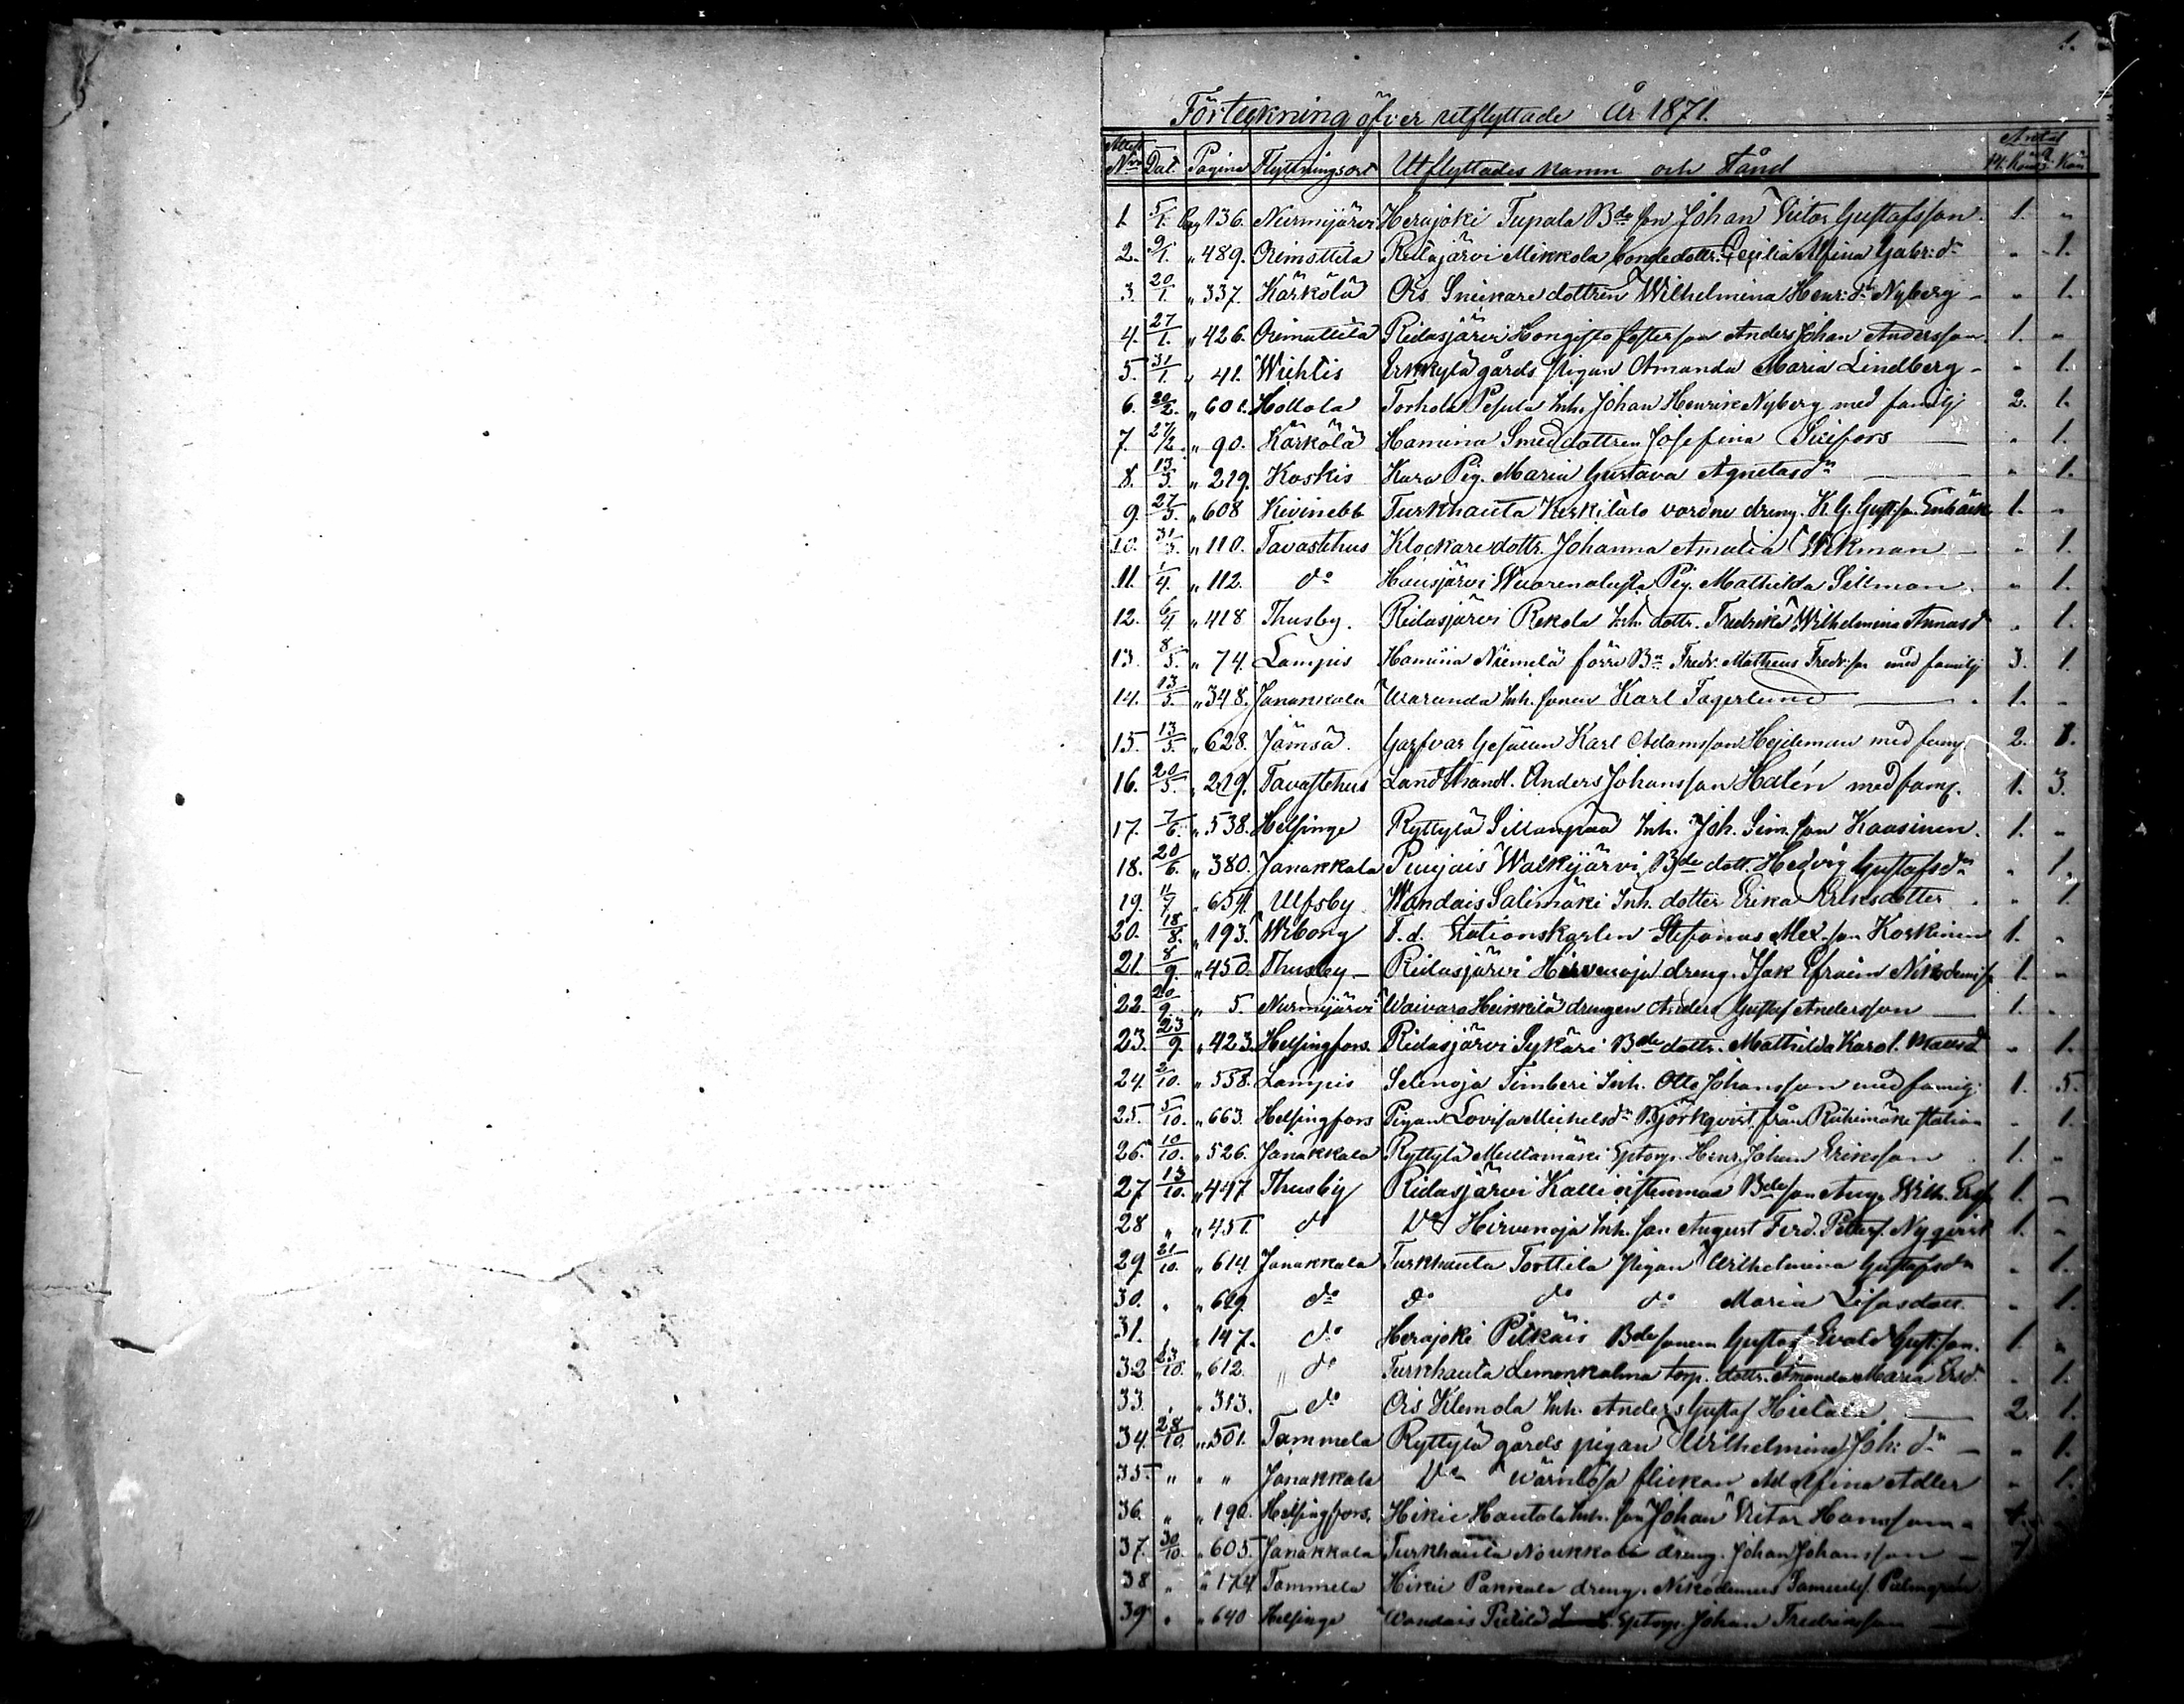 1.
Förteckning öfver utflyttade År 1871.
Attest Nro Dat. Pagina Flyttningsort Utflyttades namn och stånd Antal M. Kön Q. Kön
1. 5/1. Pag 136. Nurmijärvi Herajoki Tupala Bde son Johan Victor Gustafsson. 1. "
2. 9/1. " 489. Orimattila Ridasjärvi Mikkola bondedottr. Cecilia Alfina Gabr:dr " 1.
3. 20/1. " 337. Kärkölä Ois Snickare dottren Wilhelmina Henr:dr Nyberg " 1.
4. 27/1. " 426. Orimattila Ridasjärvi Hongisto fosterson Anders Johan Andersson. 1. "
5. 31/1. " 41. Wichtis Erkkylä gårds Pigan Amanda Maria Lindberg " 1.
6. 20/2. " 601. Hollola Torhola Pesula Inh. Johan Henrik Nyberg med familj 2. 1.
7. 27/2. " 90. Kärkölä Hamina Smeddottren Josefina " 1.
8. 13/3. " 219. Koskis Kara Pig. Maria Gustava Agnetasdr " 1.
9. 27/3. " 608 Kivinebb Turkhauta Kerkilalo vordne dreng. K.G. Gust.son 1. "
10. 31/3. " 110. Tavastehus Klockare dottr. Johanna Amalia Wikman " 1.
11. 1/4. " 112. do Hausjärvi Pig. Mathilda Sillman " 1.
12. 6/4. " 418 Thusby. Ridasjärvi Rekola Inh. dottr. Fredrika Wilhelmina Annasdr " 1.
13. 8/5. " 74. Lampis Hamina Niemelä förre Bn Fredr. Matheus Fredr.son med familj 3. 1.
14. 13/5. " 348. Janakkala Waranda Inh. sonen Karl Fagerlund 1. "
15. 13/5. " 628. Jämsä. Garfvar Gesällen Karl Adamsson Hejdeman med famj 2. 1.
16. 20/5. " 219. Tavastehus Landthandl. Anders Johansson Halén med famj. 1. 3.
17. 7/6. " 538. Helsinge Ryttylä Sillanpää Inh. Joh. Sim.son Kaasinen. 1. "
18. 20/6. " 380. Janakkala Puujais Walkijärvi Bde dott. Hedvig Gustafsdr " 1.
19. 11/7. " 654. Ulfsby Wandais Salimäki Inh. dotter Erika Eriksdotter " 1.
20. 18/8. " 193. Wiborg T.d. Stationskarlen Stefanus Alex.son Koskinen 1. "
21. 8/9. " 450. Thusby Ridasjärvi Hirvenoja dreng. Isak Efraim 1. "
22. 20/9. " 5. Nurmijärvi Waivara Heikkilä drengen Anders Gustaf Andersson 1. "
23. 23/9. " 423. Helsingfors. Ridasjärvi Sykäri Bde dottr. Mathilda Karol. Matsd " 1.
24. 2/10. " 558. Lampis Selenoja Timberi Inh. Otto Johansson med familj 1. 5.
25. 5/10. " 663. Helsingfors Pigan Lovisa Michelsdr Björkqvist från Riihimäki station " 1.
26. 10/10. " 526. Janakkala Ryttylä Multamäki Henr. Johan Eriksson 1. "
27. 13/10. " 447 Thusby Ridasjärvi Bde son Aug. Wilh. 1. "
28 " " 451. do Do Hirvenoja Inh. son August Ferd. Petters. Nyqvist 1. "
29. 21/10. " 614. Janakkala Turkhauta Torttila Pigan Wilhelmina Gustafsdr " 1.
30. " " 619. do do do do Maria Lisasdott. " 1.
31. " " 147. do Herajoki Pitkäis Bde sonen Gustaf Evald Gust.son. 1. "
32 23/10. " 612. " do Turkhauta torp. dottr. Amanda Maria Ersd. " 1.
33. " " 313. do Ois Klemola Inh. Anders Gustaf Hietala 2. 1.
34. 28/10. " 501. Tammela Ryttylä gårds pigan Wilhelmina Joh:dr " 1.
35. " " " Janakkala Do wärnlösa flickan Adolfina Adler " 1.
36. " " 190. Helsingfors. Hikie Hautala Inh. son Johan Victor Hansson 1.
37. 30/10. " 605. Janakkala Turkhauta Noukkala dreng. Johan Johansson
38 " " 174 Tammela Hikie Pakkala dreng. Nikodemus Samuels.
39 " " 640 Helsinge Wandais Johan Fredriksson